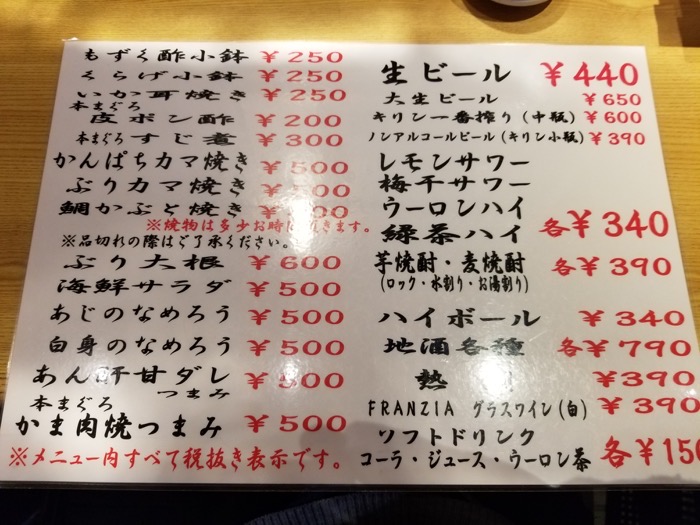 もずく酢小鉢 ￥250
くらげ小鉢 ￥250
いか耳焼き ￥250
本まぐろ
皮ポン酢 ￥200
本まぐろ すじ煮 ￥300
かんぱちカマ焼き
ぶりカマ焼き
鯛かぶと焼き
※焼物は多少お時 きます。
※品切れの際はご了承ください。
ぶり大根 ￥600
海鮮サラダ ￥500
あじのなめろう ￥500
白身のなめろう ￥500
あん肝甘ダレ
つまみ
本まぐろ
かま肉焼つまみ ￥500
※メニュー内すべて税抜き表示です。
生ビール ￥440
大生ビール ￥650
キリン一番搾り(中瓶) ￥600
ノンアルコールビール(キリン小瓶) ￥390
レモンサワー
梅干サワー
ウーロンハイ
緑茶ハイ 各￥340
芋焼酎・麦焼酎 各￥390
(ロック・水割り・お湯割り)
ハイボール ￥340
地酒各種 各￥790
熱 ￥390
FRANZIA グラスワイン(白) ￥390
ソフトドリンク
コーラ・ジュース・ウーロン茶 各￥150